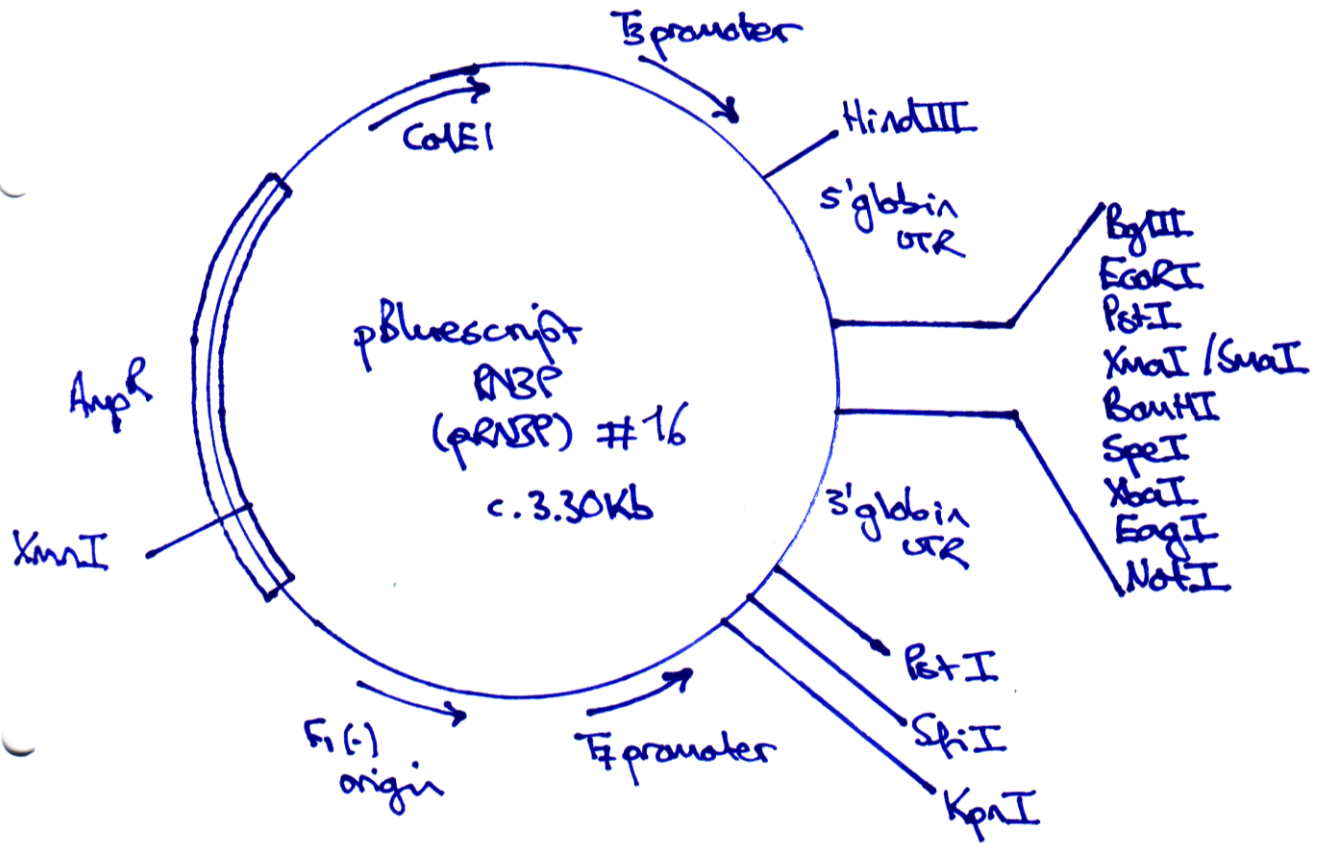 T3 promoter
HindIII
ColE1
5' globin
UTR
BglII
EcoRI
PstI
XmaI / SmaI
BamHI
SpeI
XbaI
EagI
NotI
pBluescript
RN3P
(pRN3P) #16
c. 3.30Kb
AmpR
XmnI
3' globin
UTR
PstI
SfiI
KpnI
F1 (-)
origin
T7 promoter